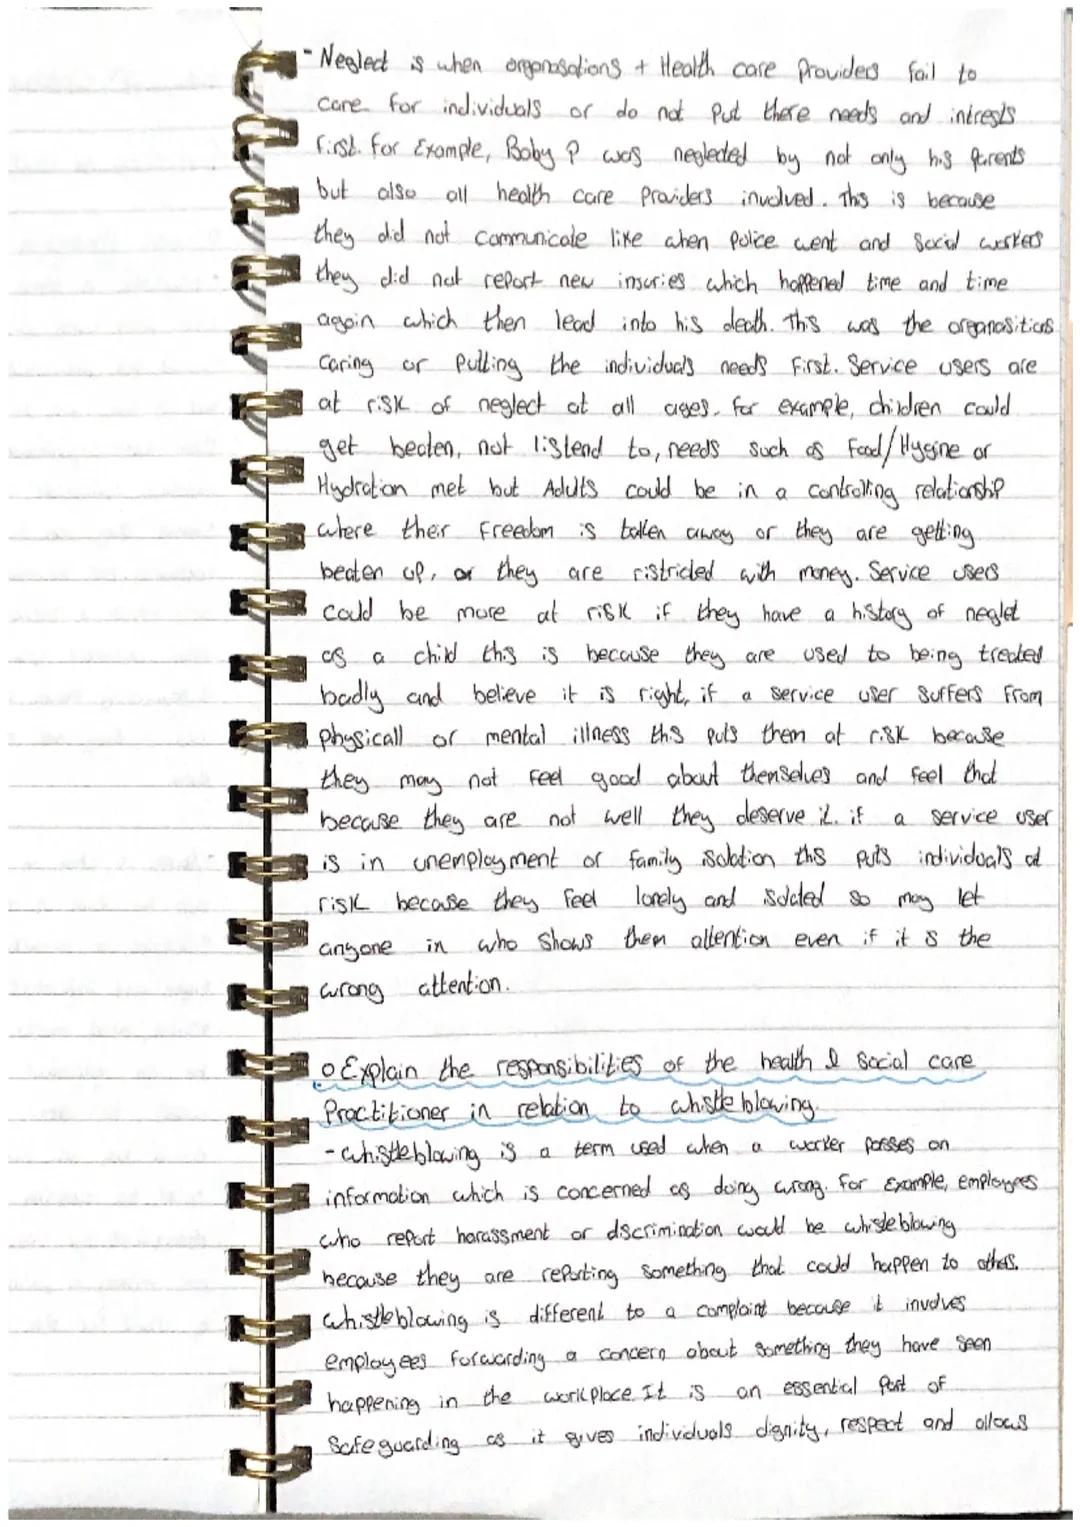 - Neglect is when organasations + Health care Providers fail to
care for individuals or do not put there needs and intrests
first. For Example, Baby P was neglected by not only his parents
but also all health care Providers involved. This is because
they did not communicate like when police went and Social workers
they did not report new insuries which happened time and time
again which then lead into his death. This was the organasitions
Caring or Putting the individuals needs First. Service users are
at risk of neglect at all ages. For example, children could
get beaten, not listend to, needs such as Food/Hygine or
Hydration met but Adults could be in a controlling relationship
where their Freedom is taken away or they are getting
beaten up, or they are ristricted with money. Service users
could be more at risk if they have a history of neglet
as a child this is because they are used to being treated
badly and believe it is right, if a service user suffers from
physicall or mental illness this puts them at risk because
they may not feel good about themselves and feel that
because they are not well they deserve it. if a service user
is in unemployment or family isolation this puts individuals at
risk because they feel lonely and isolated so may let
anyone in who shows them attention even if it is the
wrong attention.
o Explain the responsibilities of the health & Social care
Practitioner in relation to whistleblowing.
- whistleblowing is a term used when a worker passes on
information which is concerned as doing wrong. For Example, employees
who report harassment or discrimination would be whistleblowing
because they are reporting something that could happen to others.
whistleblowing is different to a complaint because it involves
employees forwarding a concern about something they have seen
happening in the workplace. It is an essential part of
Safeguarding as it gives individuals dignity, respect and allows